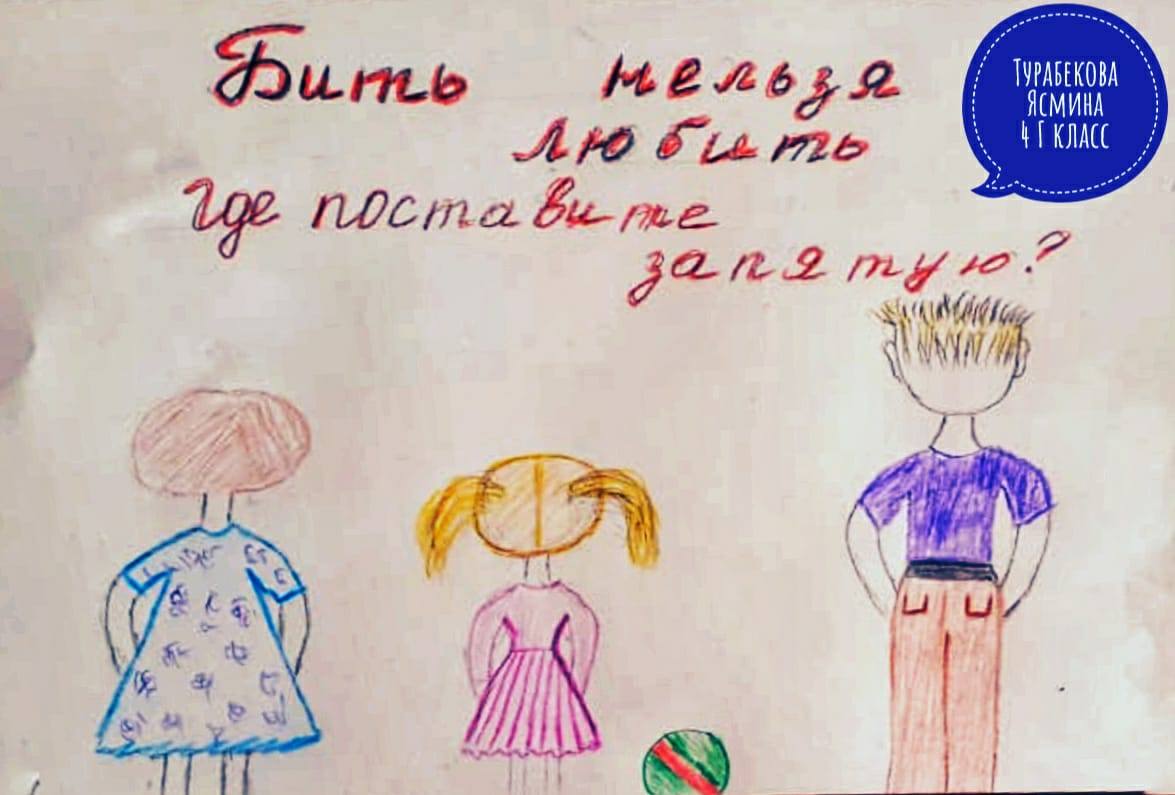 Бить нельзя
любить
Где поставите
запятую?
Турабекова
Ясмина
4 Г класс